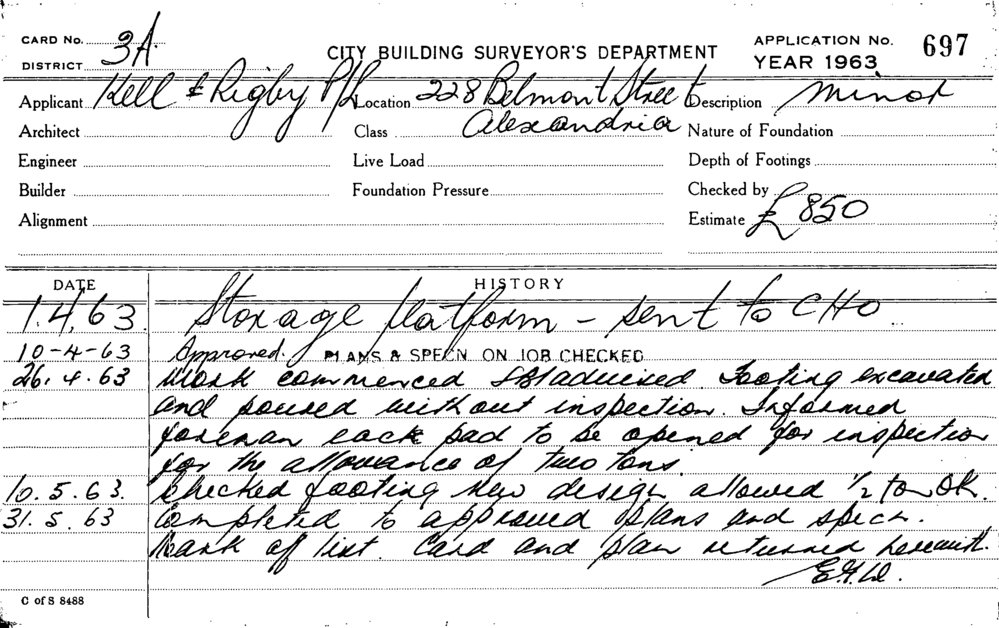 CARD No. 3A
DISTRICT
CITY BUILDING SURVEYOR'S DEPARTMENT
APPLICATION No. 697
YEAR 1963
Applicant Kell & Rigby P/L Location 228 Belmont Street Description Minor
Architect Class Alexandria Nature of Foundation
Engineer Live Load Depth of Footings
Builder Foundation Pressure Checked by
Alignment Estimate £850
DATE HISTORY
1.4.63 Storage platform - sent to CHO
10-4-63 Approved. PLANS & SPECN ON JOB CHECKED
26.4.63 Work commenced Footing excavated
and poured without inspection. Informed
foreman each pad to be opened for inspection
for the allowance of two tons.
10.5.63. Checked footing new design allowed 1/2 ton OK.
31.5.63 Completed to approved plans and specn.
Mark of list. Card and plan returned herewith.
C of S 8488